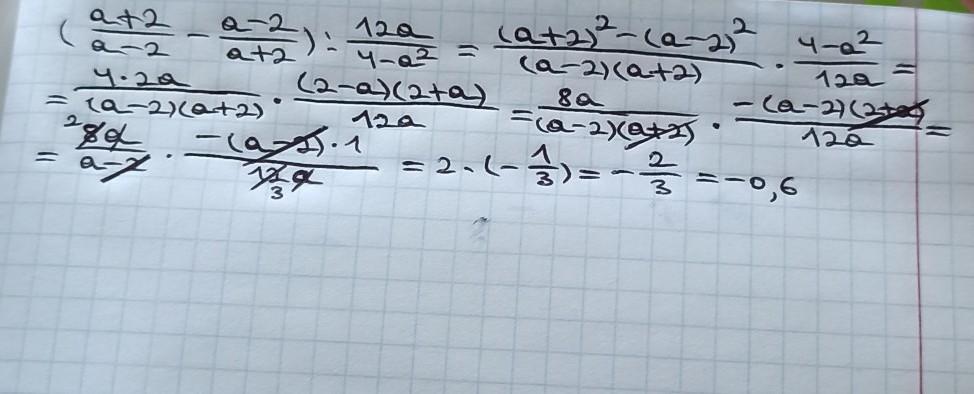 (\frac{a+2}{a-2} - \frac{a-2}{a+2}) : \frac{12a}{4-a^2} = \frac{(a+2)^2-(a-2)^2}{(a-2)(a+2)} \cdot \frac{4-a^2}{12a} =
= \frac{4 \cdot 2a}{(a-2)(a+2)} \cdot \frac{(2-a)(2+a)}{12a} = \frac{8a}{(a-2)(a+2)} \cdot \frac{-(a-2)(2+a)}{12a} =
= \frac{^2 8a}{a-2} \cdot \frac{-(a-2) \cdot 1}{12_3 a} = 2 \cdot (-\frac{1}{3}) = -\frac{2}{3} = -0,6